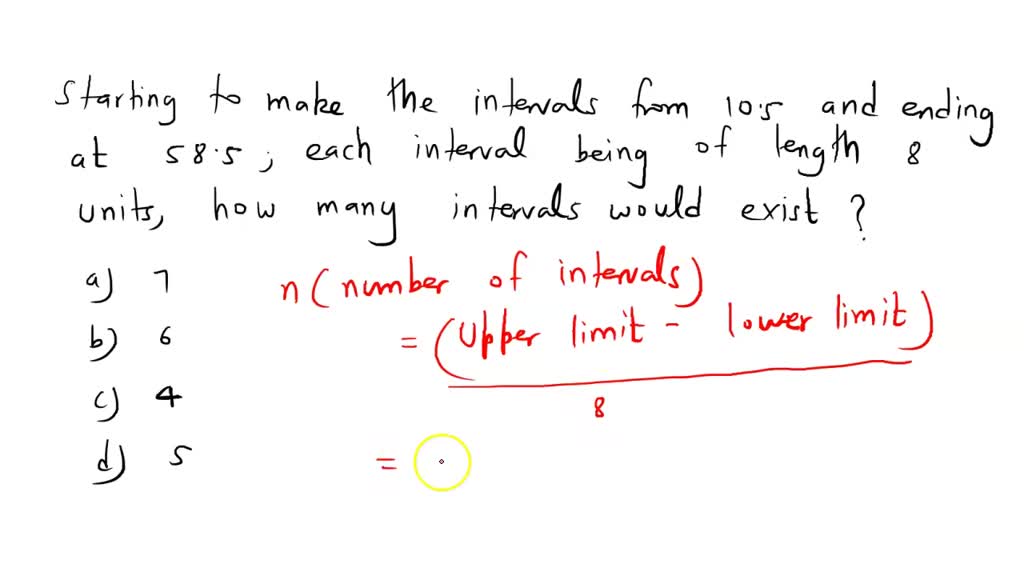 Starting to make the intervals from 10.5 and ending
at 58.5, each interval being of length 8
units, how many intervals would exist?
a) 7
b) 6
c) 4
d) 5
n (number of intervals)
= (Upper limit - lower limit)
8
=